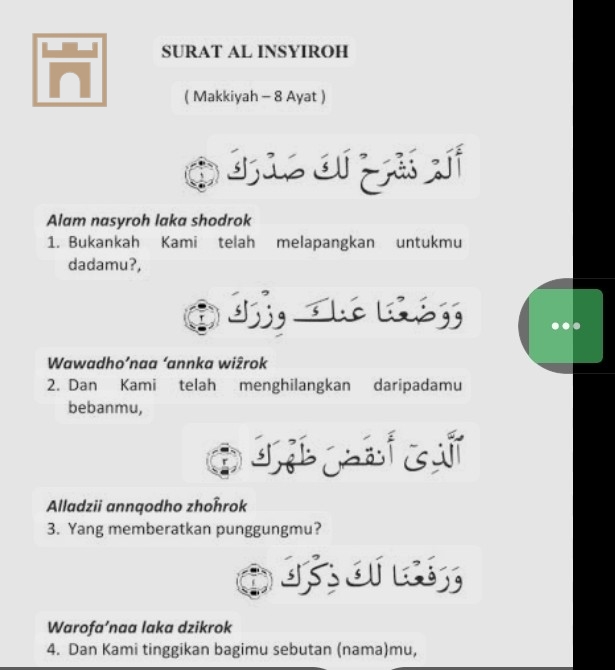 SURAT AL INSYIROH
( Makkiyah – 8 Ayat )
أَلَمْ نَشْرَحْ لَكَ صَدْرَكَ ١
Alam nasyroh laka shodrok
1. Bukankah Kami telah melapangkan untukmu
dadamu?,
وَوَضَعْنَا عَنكَ وِزْرَكَ ٢
Wawadho’naa ‘annka wiẑrok
2. Dan Kami telah menghilangkan daripadamu
bebanmu,
ٱلَّذِىٓ أَنقَضَ ظَهْرَكَ ٣
Alladzii annqodho zhoĥrok
3. Yang memberatkan punggungmu?
وَرَفَعْنَا لَكَ ذِكْرَكَ ٤
Warofa’naa laka dzikrok
4. Dan Kami tinggikan bagimu sebutan (nama)mu,